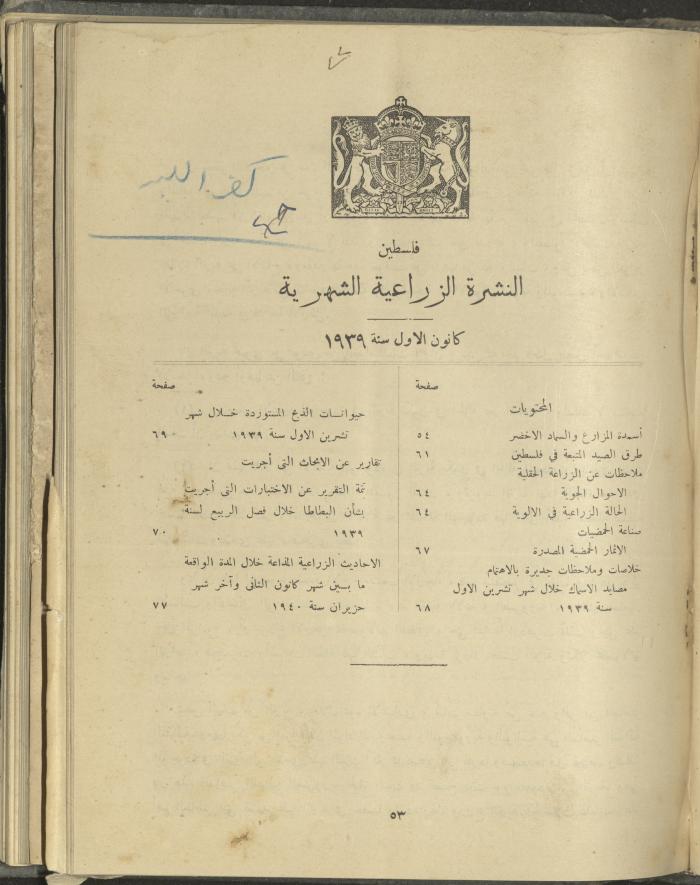 كفر اللبد
فلسطين
النشرة الزراعية الشهرية
كانون الاول سنة ١٩٣٩
صفحة
المحتويات
أسمدة المزارع والسماد الاخضر ٥٤
طرق الصيد المتبعة في فلسطين ٦١
ملاحظات عن الزراعة الحقلية
الاحوال الجوية ٦٤
الحالة الزراعية في الالوية ٦٤
صناعة الحمضيات
الاثمار الحمضية المصدرة ٦٧
خلاصات وملاحظات جديرة بالاهتمام
مصايد الاسماك خلال شهر تشرين الاول
سنة ١٩٣٩ ٦٨
صفحة
حيوانات الذبح المستوردة خلال شهر
تشرين الاول سنة ١٩٣٩ ٦٩
تقارير عن الابحاث التى أجريت
تتمة التقرير عن الاختبارات التى أجريت
بشأن البطاطا خلال فصل الربيع لسنة
١٩٣٩ ٧٠
الاحاديث الزراعية المذاعة خلال المدة الواقعة
ما بين شهر كانون الثانى وآخر شهر
حزيران سنة ١٩٤٠ ٧٧
٥٣